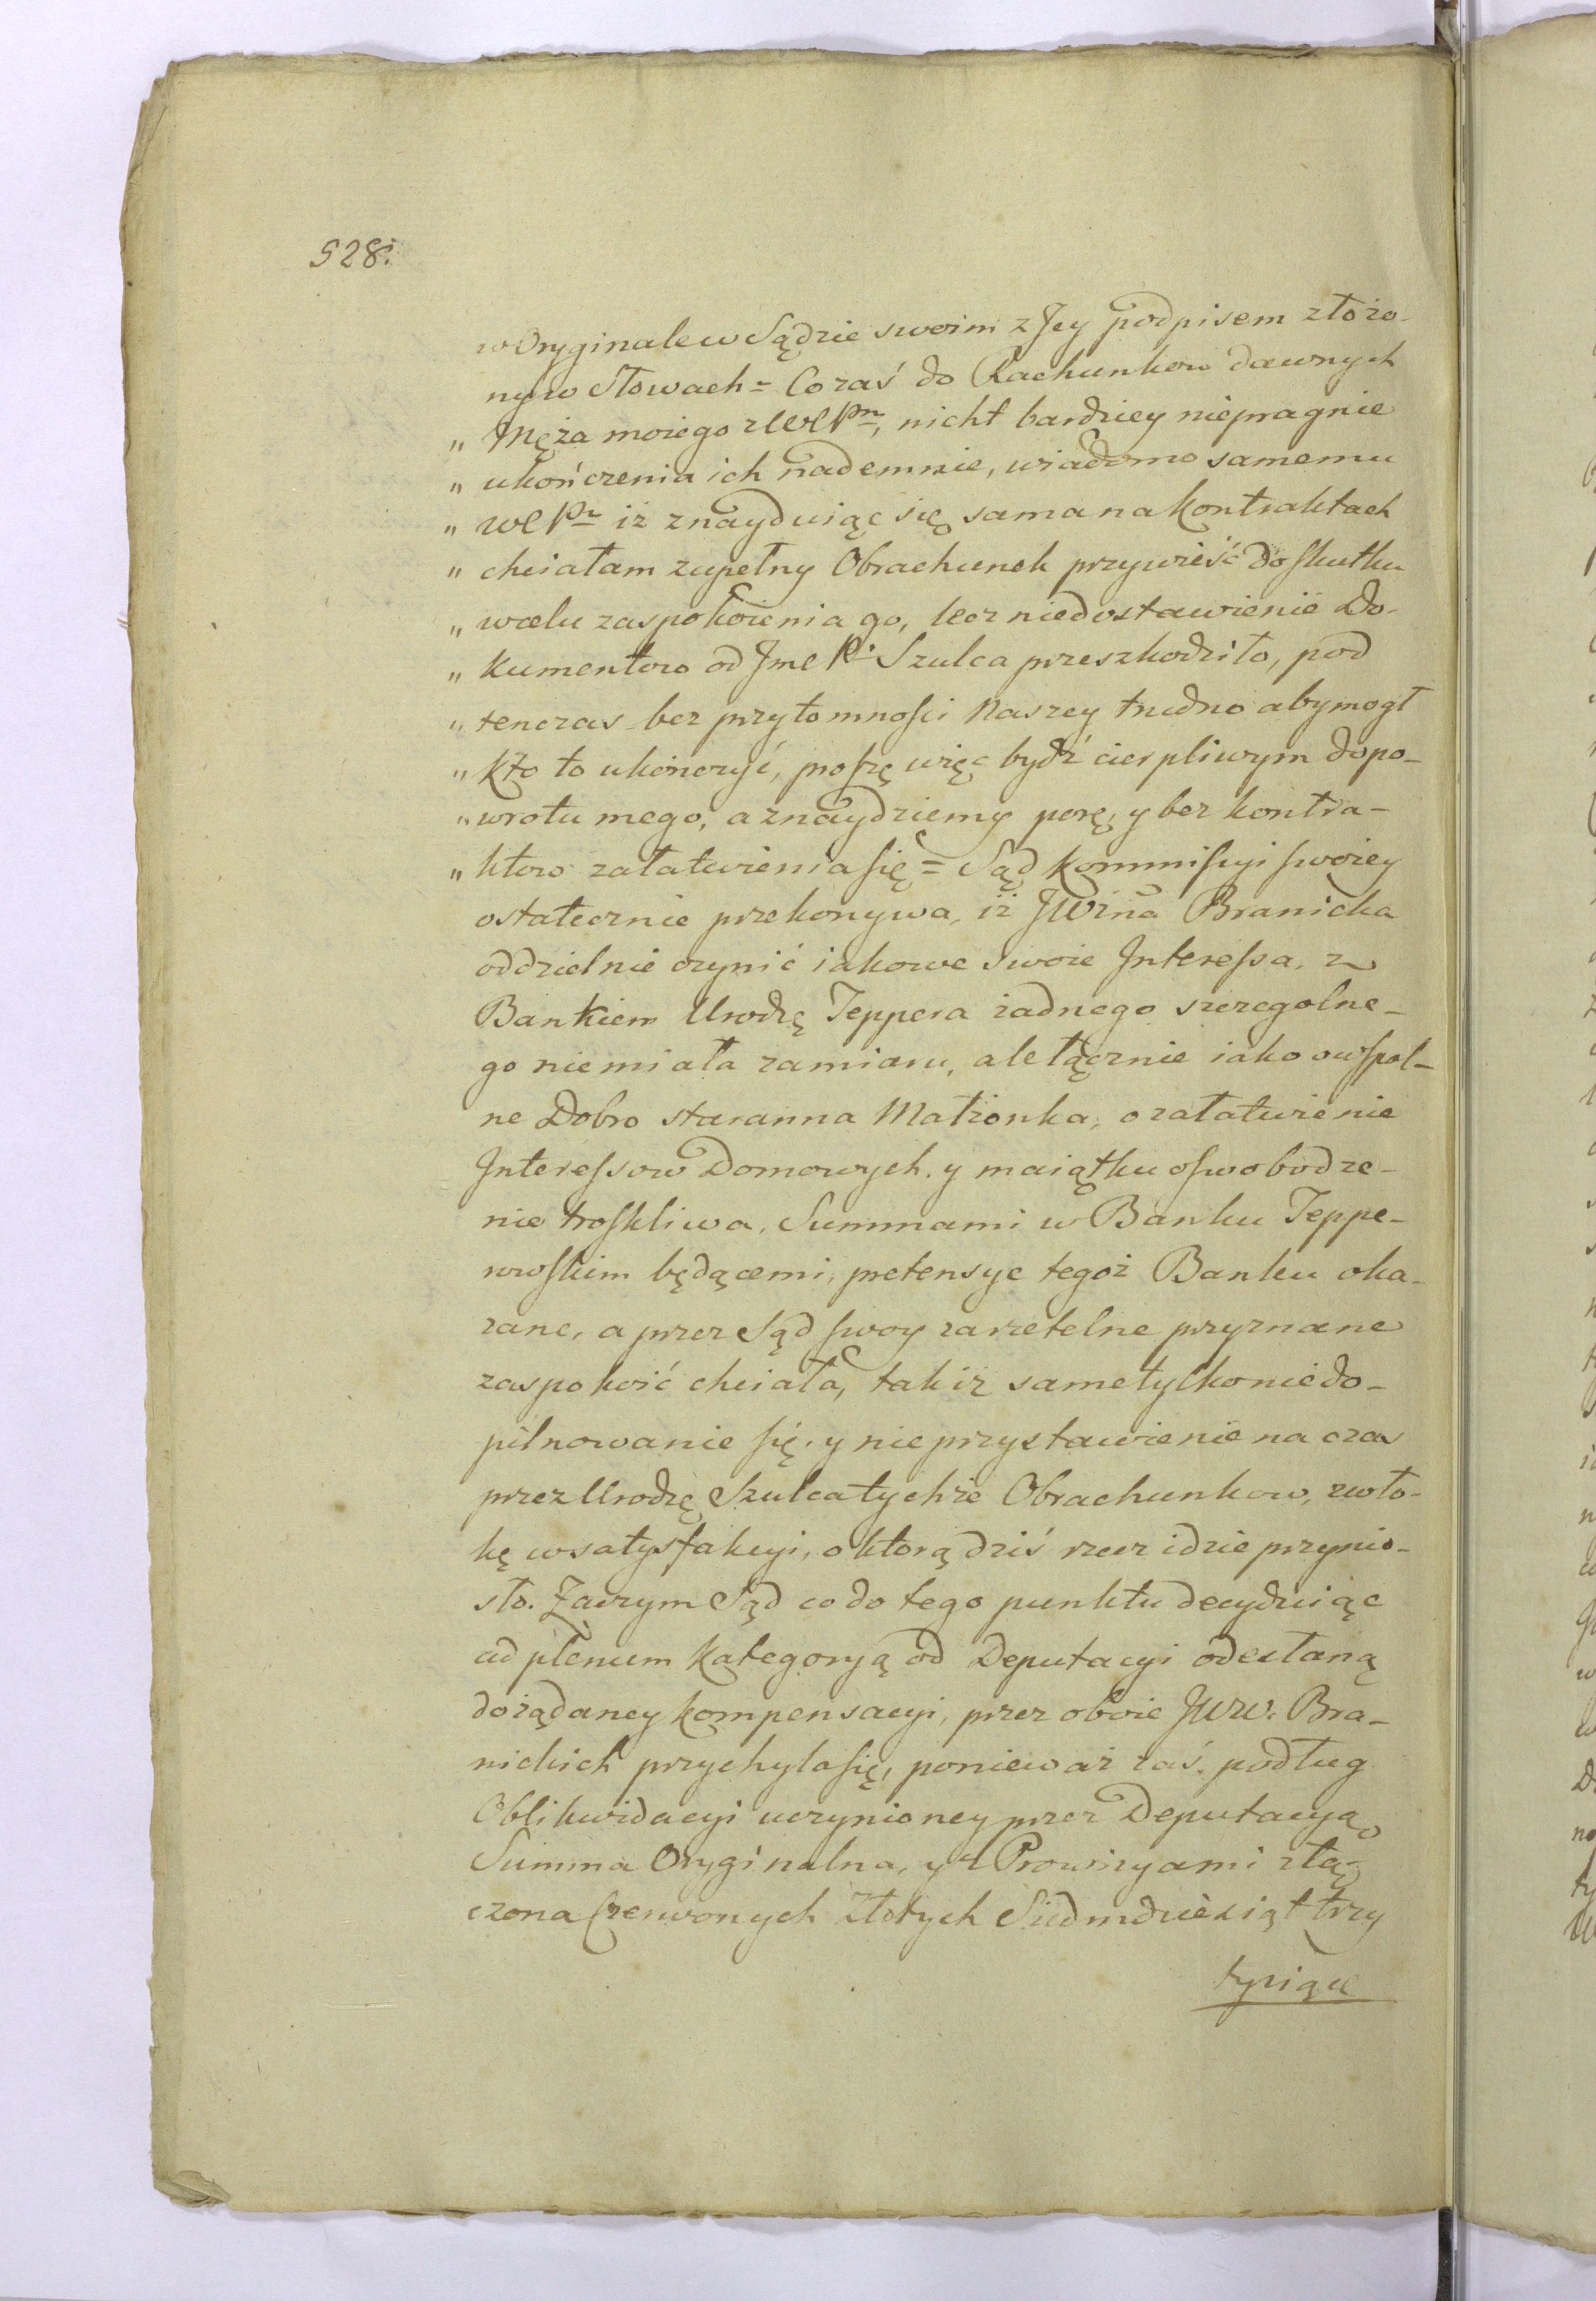 528.
w Oryginale w Sądzie swoim z Jey podpisem złożo-
ny w Słowach = Co zaś do Rachunkow dawnych
„ Męża moiego z WC Pn, nicht bardziey niepragnie
„ ukończenia ich nademnie, wiadomo samemu
„ WC Pn iż znayduiąc się sama na Kontraktach
„ chciałam zupełny Obrachunek przywieść do skutku
„ w celu zaspokoienia go, lecz niedostawienie Do-
„ kumentow od Jmc P. Szulca przeszkodziło, pod
„ tenczas bez przytomności Naszey trudno aby mogł
„ kto to ukończyć, proszę więc bydź cierpliwym do po-
„ wrotu mego, a znaydziemy porę, y bez kontra-
„ ktow załatwienia się = Sąd Kommissyi swoiey
ostatecznie przekonywa, iż JWżna Branicka
oddzielnie czynić iakowe swoie Interessa, z
Bankiem Urodzę Teppera żadnego szczegolne-
go niemiała zamiaru, ale łącznie iako o wspol-
ne Dobro staranna Małżonka, o załatwienie
Interessow Domowych. y maiątku oswobodze-
nie troskliwa, Summami w Banku Teppe-
rowskim będącemi, pretensye tegoż Banku oka-
zane, a przez Sąd swoy za rzetelne przyznane
zaspokoić chciała, tak iż same tylko niedo-
pilnowanie się. y nieprzystawienie na czas
przez Urodzę Szulca tychże Obrachunkow, zwło-
kę w satysfakcyi, o którą dziś rzecz idzie przynio-
sło. Zaczym Sąd co do tego punktu decyduiąc
ad plenum Kategoryą od Deputacyi odesłaną
do żądaney kompensacyi, przez oboie JWW. Bra-
nickich przychyla się, ponieważ zaś. podług
Oblikwidacyi uczynioney przez Deputacyą
Summa Oryginalna, y z Prowizyami złą-
czona Czerwonych Złotych Siedmdziesiąt trzy
tysiące